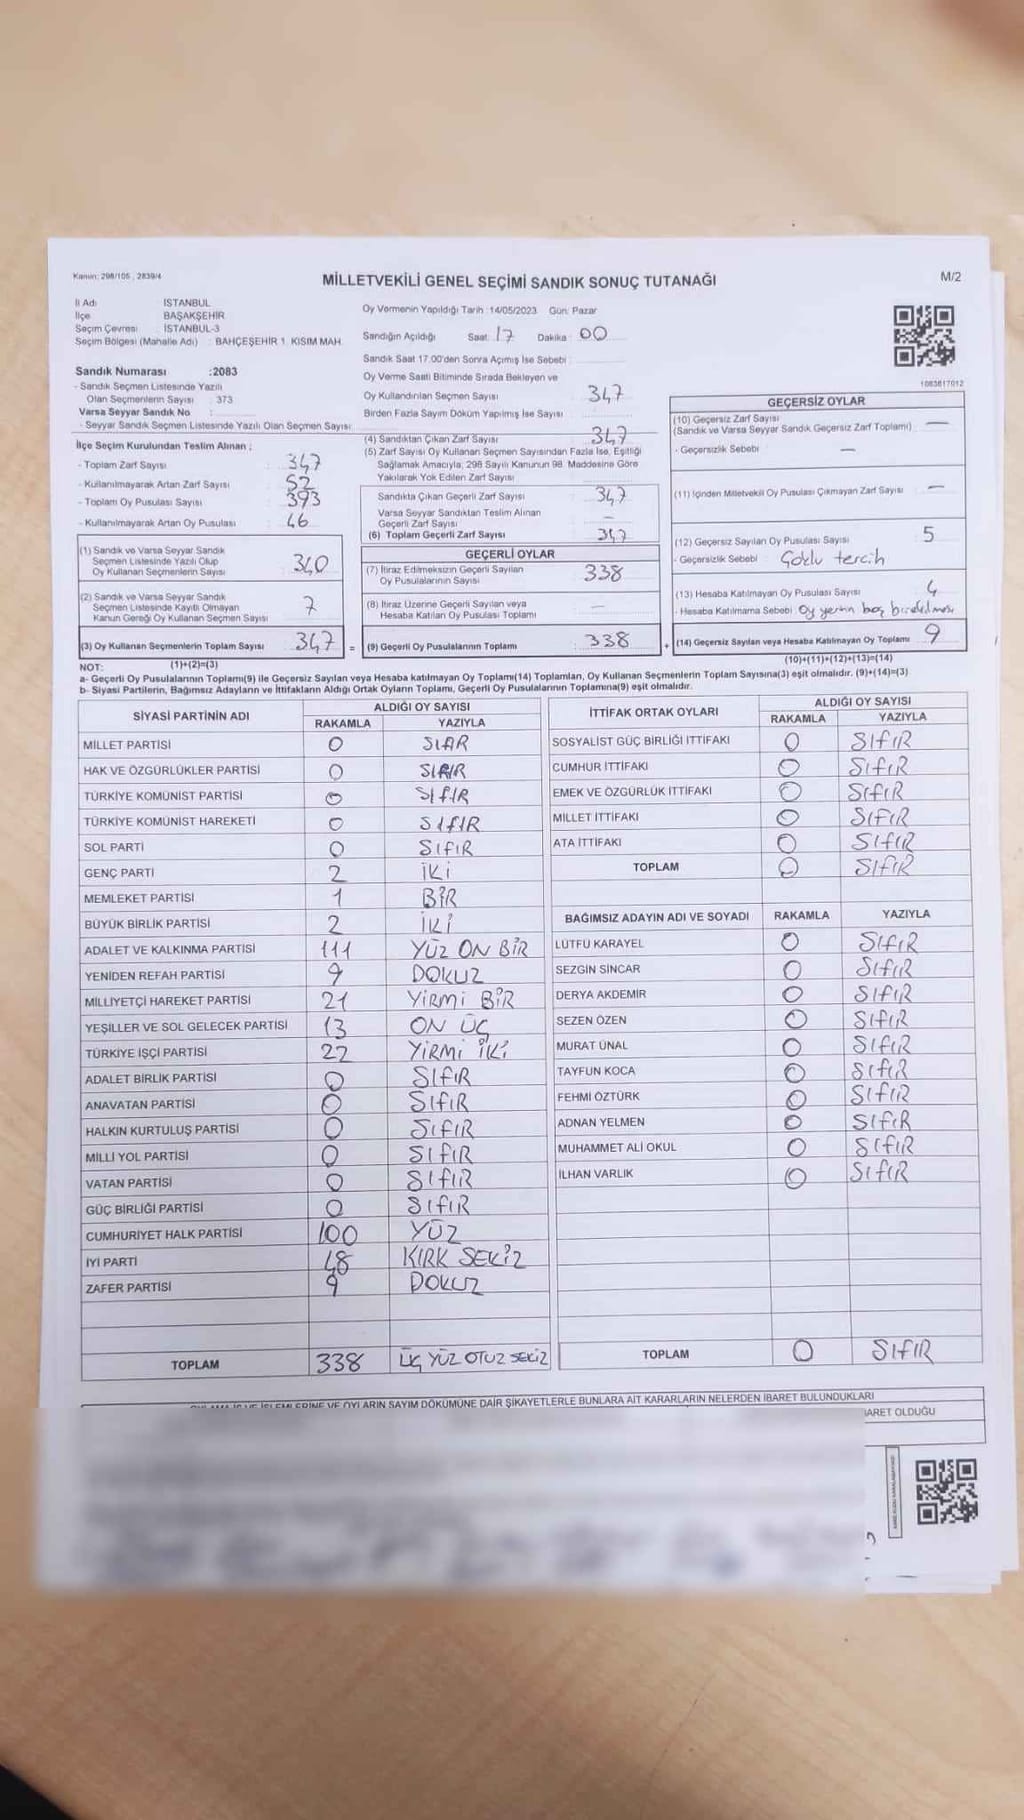 Kanun: 298/105 , 2839/4
MİLLETVEKİLİ GENEL SEÇİMİ SANDIK SONUÇ TUTANAĞI
M/2
İl Adı : İSTANBUL
İlçe : BAŞAKŞEHİR
Seçim Çevresi : İSTANBUL-3
Seçim Bölgesi (Mahalle Adı) : BAHÇEŞEHİR 1. KISIM MAH.
Sandık Numarası :2083
- Sandık Seçmen Listesinde Yazılı
Olan Seçmenlerin Sayısı : 373
Varsa Seyyar Sandık No :
- Seyyar Sandık Seçmen Listesinde Yazılı Olan Seçmen Sayısı:
İlçe Seçim Kurulundan Teslim Alınan ;
- Toplam Zarf Sayısı : 347
- Kullanılmayarak Artan Zarf Sayısı : 52
- Toplam Oy Pusulası Sayısı : 393
- Kullanılmayarak Artan Oy Pusulası : 46
(1) Sandık ve Varsa Seyyar Sandık
Seçmen Listesinde Yazılı Olup
Oy Kullanan Seçmenlerin Sayısı : 340
(2) Sandık ve Varsa Seyyar Sandık
Seçmen Listesinde Kayıtlı Olmayan
Kanun Gereği Oy Kullanan Seçmen Sayısı : 7
(3) Oy Kullanan Seçmenlerin Toplam Sayısı : 347 =
Oy Vermenin Yapıldığı Tarih :14/05/2023 Gün: Pazar
Sandığın Açıldığı Saat: 17 Dakika : 00
Sandık Saat 17:00'den Sonra Açımış İse Sebebi :
Oy Verme Saati Bitiminde Sırada Bekleyen ve
Oy Kullandırılan Seçmen Sayısı : 347
Birden Fazla Sayım Döküm Yapılmış İse Sayısı :
(4) Sandıktan Çıkan Zarf Sayısı : 347
(5) Zarf Sayısı Oy Kullanan Seçmen Sayısından Fazla İse, Eşitliği
Sağlamak Amacıyla, 298 Sayılı Kanunun 98. Maddesine Göre
Yakılarak Yok Edilen Zarf Sayısı :
Sandıkta Çıkan Geçerli Zarf Sayısı : 347
Varsa Seyyar Sandıktan Teslim Alınan
Geçerli Zarf Sayısı : —
(6) Toplam Geçerli Zarf Sayısı : 347
GEÇERLİ OYLAR
(7) İtiraz Edilmeksizin Geçerli Sayılan
Oy Pusulalarının Sayısı : 338
(8) İtiraz Üzerine Geçerli Sayılan veya
Hesaba Katılan Oy Pusulası Toplamı : —
(9) Geçerli Oy Pusulalarının Toplamı : 338 +
1083817012
GEÇERSİZ OYLAR
(10) Geçersiz Zarf Sayısı
(Sandık ve Varsa Seyyar Sandık Geçersiz Zarf Toplamı) : —
- Geçersizlik Sebebi : —
(11) İçinden Milletvekili Oy Pusulası Çıkmayan Zarf Sayısı : —
(12) Geçersiz Sayılan Oy Pusulası Sayısı : 5
- Geçersizlik Sebebi : Çoklu tercih
(13) Hesaba Katılmayan Oy Pusulası Sayısı : 4
- Hesaba Katılmama Sebebi : Oy yerinin boş bırakılması
(14) Geçersiz Sayılan veya Hesaba Katılmayan Oy Toplamı : 9
NOT: (1)+(2)=(3) (10)+(11)+(12)+(13)=(14)
a- Geçerli Oy Pusulalarının Toplamı(9) ile Geçersiz Sayılan veya Hesaba katılmayan Oy Toplamı(14) Toplamları, Oy Kullanan Seçmenlerin Toplam Sayısına(3) eşit olmalıdır. (9)+(14)=(3)
b- Siyasi Partilerin, Bağımsız Adayların ve İttifakların Aldığı Ortak Oyların Toplamı, Geçerli Oy Pusulalarının Toplamına(9) eşit olmalıdır.
SİYASİ PARTİNİN ADI ALDIĞI OY SAYISI
RAKAMLA YAZIYLA
MİLLET PARTİSİ 0 SIFIR
HAK VE ÖZGÜRLÜKLER PARTİSİ 0 SIFIR
TÜRKİYE KOMÜNİST PARTİSİ 0 SIFIR
TÜRKİYE KOMÜNİST HAREKETİ 0 SIFIR
SOL PARTİ 0 SIFIR
GENÇ PARTİ 2 İKİ
MEMLEKET PARTİSİ 1 BİR
BÜYÜK BİRLİK PARTİSİ 2 İKİ
ADALET VE KALKINMA PARTİSİ 111 YÜZ ON BİR
YENİDEN REFAH PARTİSİ 9 DOKUZ
MİLLİYETÇİ HAREKET PARTİSİ 21 YİRMİ BİR
YEŞİLLER VE SOL GELECEK PARTİSİ 13 ON ÜÇ
TÜRKİYE İŞÇİ PARTİSİ 22 YİRMİ İKİ
ADALET BİRLİK PARTİSİ 0 SIFIR
ANAVATAN PARTİSİ 0 SIFIR
HALKIN KURTULUŞ PARTİSİ 0 SIFIR
MİLLİ YOL PARTİSİ 0 SIFIR
VATAN PARTİSİ 0 SIFIR
GÜÇ BİRLİĞİ PARTİSİ 0 SIFIR
CUMHURİYET HALK PARTİSİ 100 YÜZ
İYİ PARTİ 48 KIRK SEKİZ
ZAFER PARTİSİ 9 DOKUZ
TOPLAM 338 ÜÇ YÜZ OTUZ SEKİZ
İTTİFAK ORTAK OYLARI ALDIĞI OY SAYISI
RAKAMLA YAZIYLA
SOSYALİST GÜÇ BİRLİĞİ İTTİFAKI 0 SIFIR
CUMHUR İTTİFAKI 0 SIFIR
EMEK VE ÖZGÜRLÜK İTTİFAKI 0 SIFIR
MİLLET İTTİFAKI 0 SIFIR
ATA İTTİFAKI 0 SIFIR
TOPLAM 0 SIFIR
BAĞIMSIZ ADAYIN ADI VE SOYADI RAKAMLA YAZIYLA
LÜTFÜ KARAYEL 0 SIFIR
SEZGİN SİNCAR 0 SIFIR
DERYA AKDEMİR 0 SIFIR
SEZEN ÖZEN 0 SIFIR
MURAT ÜNAL 0 SIFIR
TAYFUN KOCA 0 SIFIR
FEHMİ ÖZTÜRK 0 SIFIR
ADNAN YELMEN 0 SIFIR
MUHAMMET ALİ OKUL 0 SIFIR
İLHAN VARLIK 0 SIFIR
TOPLAM 0 SIFIR
VE OYLARIN SAYIM DÖKÜMÜNE DAİR ŞİKAYETLERLE BUNLARA AİT KARARLARIN NELERDEN İBARET BULUNDUKLARI
OLDUĞU